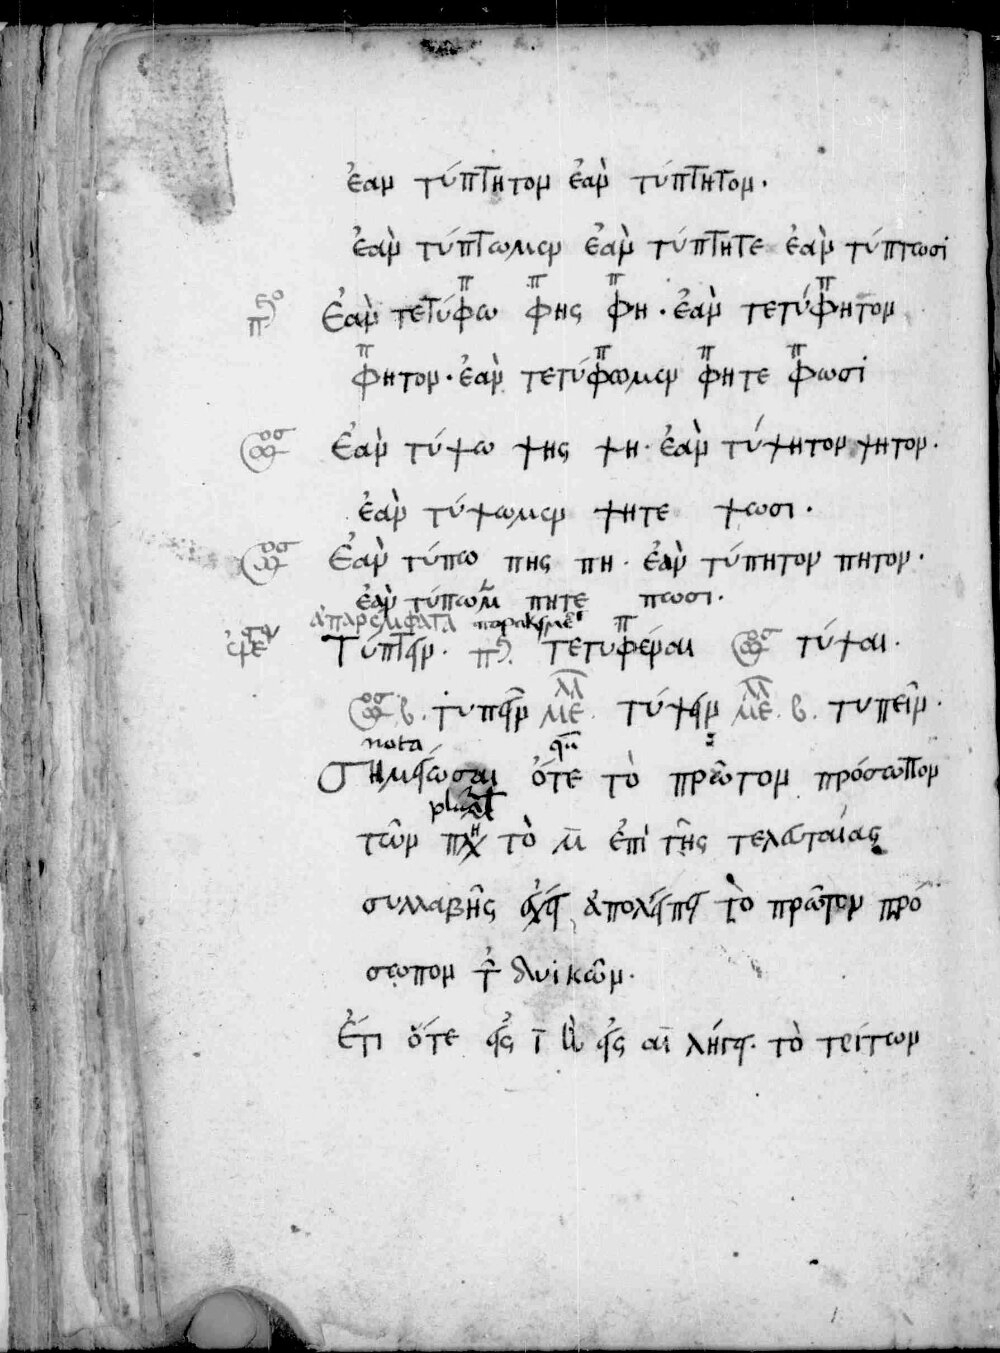 ἐαν τύπτητον ἐὰν τύπτητον.
ἐὰν τύπτωμεν ἐὰν τύπτητε ἐὰν τύπτωσι
π π π π
Ἐὰν τετύφω φης φη · ἐὰν τετύφητον
π π π π
φητον · ἐὰν τετύφωμεν φητε φωσι
Ἐὰν τύψω ψης ψη · ἐὰν τύψητον ψητον ·
ἐὰν τύψωμεν ψητε ψωσι ·
Ἐὰν τύπω πης πη · ἐὰν τύπητον πητον ·
ἐὰν τύπωμ πητε πωσι ·
ἀπαρέμφατα π
Τύπτειν · τετυφέναι τύψαι ·
β · τυπεῖν με τύψειν με · β · τυπεῖν ·
nota
Σημείωσαι ὅτε τὸ πρῶτον πρόσωπον
τῶν πλη τὸ μ ἐπὶ τῆς τελευταίας
συλλαβῆς ἔχει ἀπολείπει τὸ πρῶτον πρό
σωπον τ δυικῶν ·
Ἔτι ὅτε εἰς ι εἰς αι λήγει · τὸ τρίτων